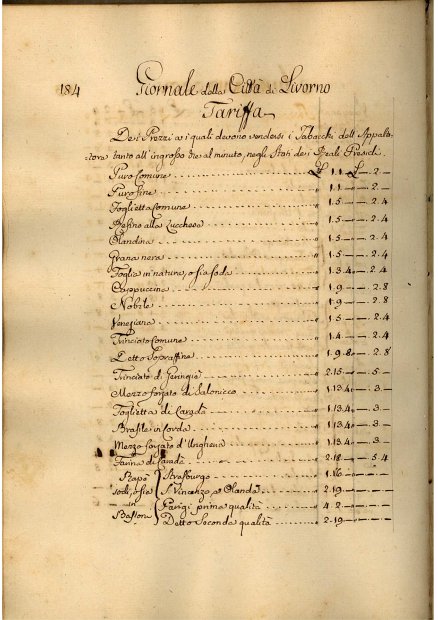 184
Giornale della Città di Livorno
Tariffa
Dei Prezzi a i quali devono vendersi i Tabacchi dell'Appalta-
tore tanto all'ingrosso che al minuto, negli Stati dei Reali Presidi.
Puro Comune 1.1 2
Puro fine 1.1 2
Foglietta Comune 1.5 2.4
Pesino alla Zucchera 1.5 2.4
Olandina 1.5 2.4
Grana nera 1.5 2.4
Foglia in natura, o sia soda 1.3.4 2.4
Cappuccina 1.9 2.8
Nobile 1.9 2.8
Veneziana 1.5 2.4
Trinciato Comune 1.4 2.4
Detto Sopraffine 1.9.8 2.8
Trinciato di 2.15 5
Mezzo forzato di Salonicco 1.13.4 3
Foglietta di 1.13.4 3
Brasile in Corda 1.13.4 3
Mezzo forzato d'Ungheria 1.13.4 3
Farina di 2.18 5.4
Rapè Strasburgo 1.16
sodi, o sia S. Vincenzo, e Olanda 2.19
in Parigi prima qualità 4.2
Bastoni Detto Seconda qualità 2.19